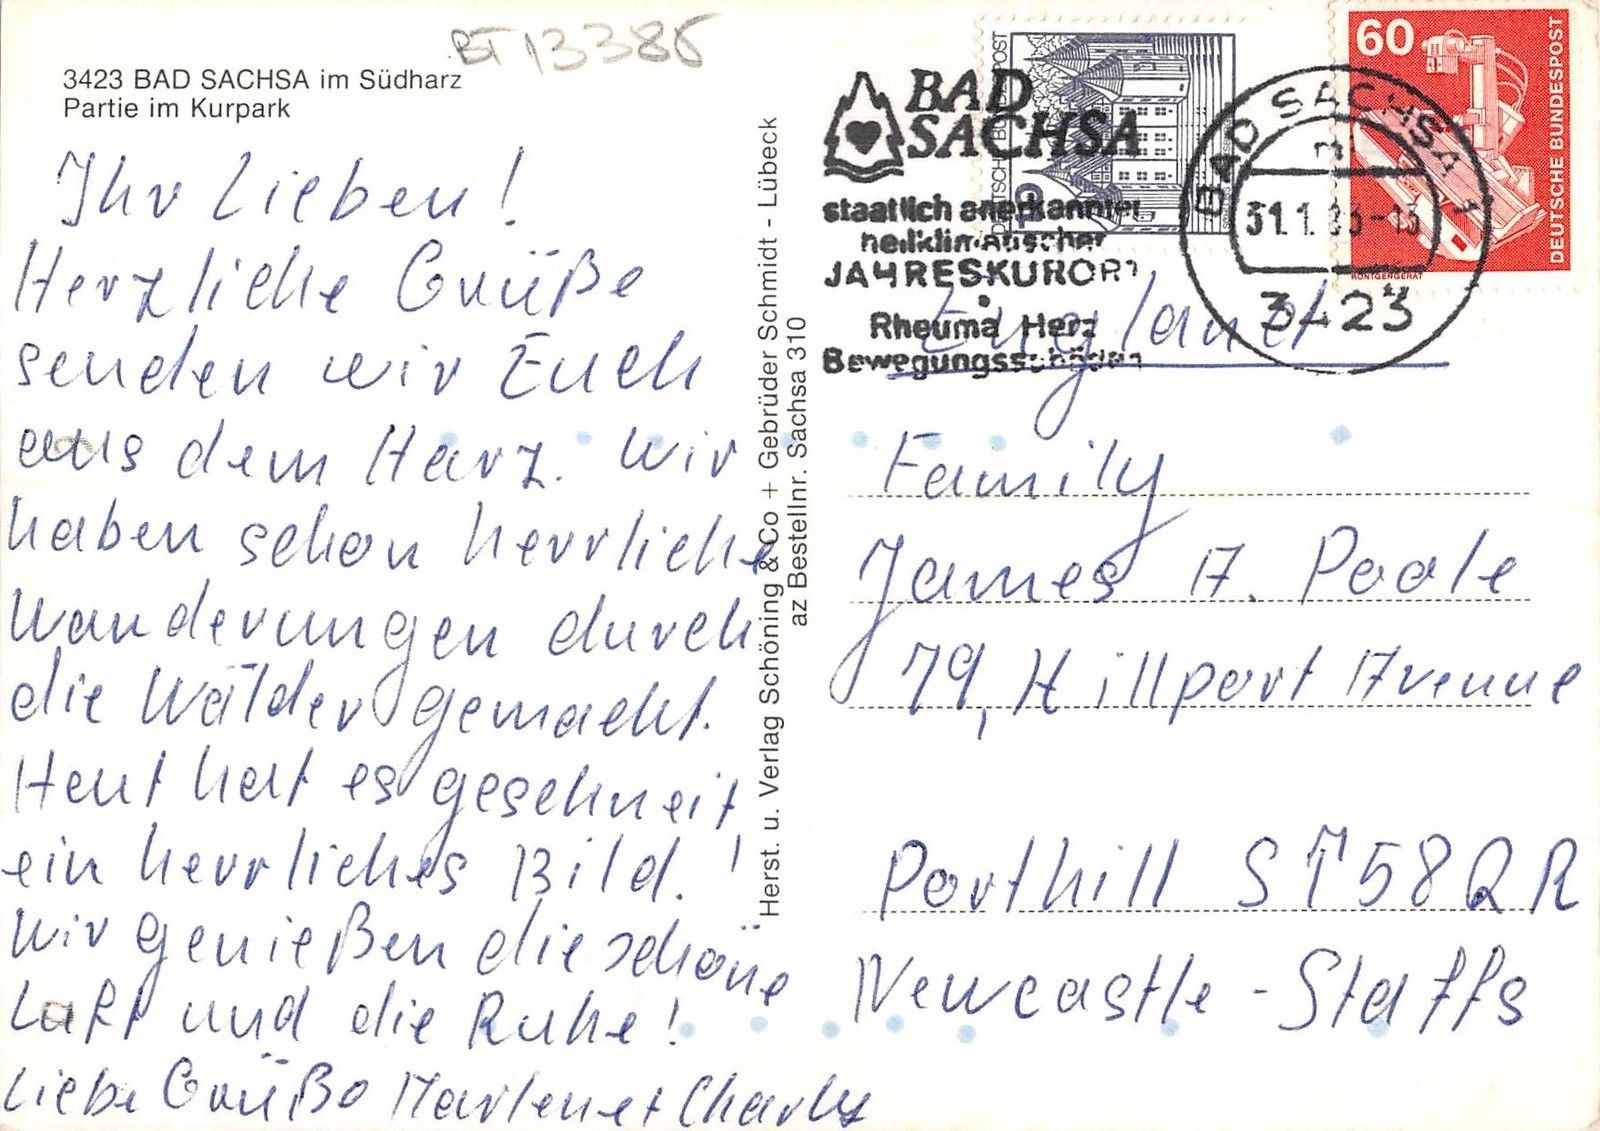 BT 13386
3423 BAD SACHSA im Südharz
Partie im Kurpark
Ihr Lieben!
Herzliche Grüße
senden wir Euch
aus dem Harz. Wir
haben schon herrliche
Wanderungen durch
die Wälder gemacht.
Heut hat es geschneit,
ein herrliches Bild.!
Wir genießen die schöne
Luft und die Ruhe!
Liebe Grüße Marlene + Charly
Herst. u. Verlag Schöning & Co + Gebrüder Schmidt - Lübeck
az Bestellnr. Sachsa 310
BAD
SACHSA
staatlich anerkannter
heilklimatischer
JAHRESKURORT
Rheuma Herz
Bewegungsschäden
DEUTSCHE BUNDESPOST
60
DEUTSCHE BUNDESPOST
RÖNTGENGERÄT
BAD SACHSA 1
31.1.8 -13
3423
England
Family
James A. Poole
79, Hillport Avenue
Porthill ST58QR
Newcastle - Staffs